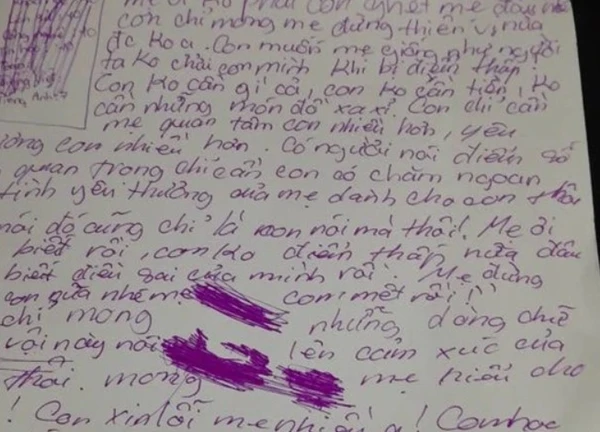 mẹ ạ
con chỉ mong mẹ đừng thiên vị nữa
đc ko ạ. Con muốn mẹ giống như người
ta ko chửi con mình khi bị điểm thấp.
Con ko cần gì cả, con ko cần tiền, ko
cần những món đồ xa xỉ. Con chỉ cần
mẹ quan tâm con nhiều hơn, yêu
thương con nhiều hơn. Có người nói điểm số
quan trọng chỉ cần con có chăm ngoan
tình yêu thương của mẹ dành cho con
nói đó cũng chỉ là con nói mà thôi!. Mẹ ơi
biết rồi, con ko điểm thấp nữa đâu
biết điều sai của mình rồi. Mẹ đừng
con nữa nhé mẹ con mệt rồi!
chỉ mong những dòng chữ
vội này nói lên cảm xúc của
thôi. mong mẹ hiểu cho
! Con xin lỗi mẹ nhiều ạ! Con học